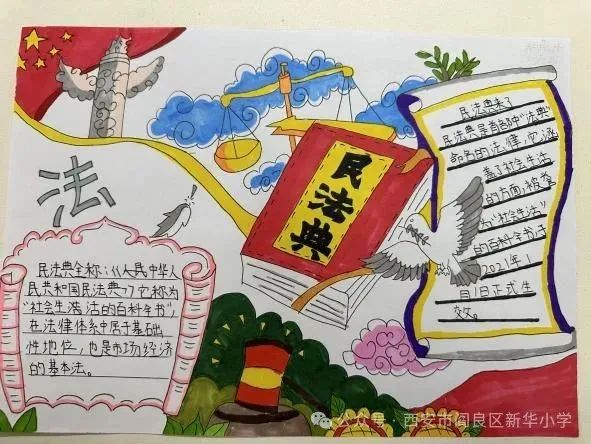 法
民法典
民法典来了
民法典是首部中“法典”
命名的法律,它涵
盖了社会生活
的方面,被誉
为“社会生活”
的百科全书于
2021年1
月1日正式生
效。
民法典全称:《人民中华人
民共和国民法典》它称为
“社会生活的百科全书”,
在法律体系中居于基础
性地位,也是市场经济
的基本法。
公众号·西安市阎良区新华小学